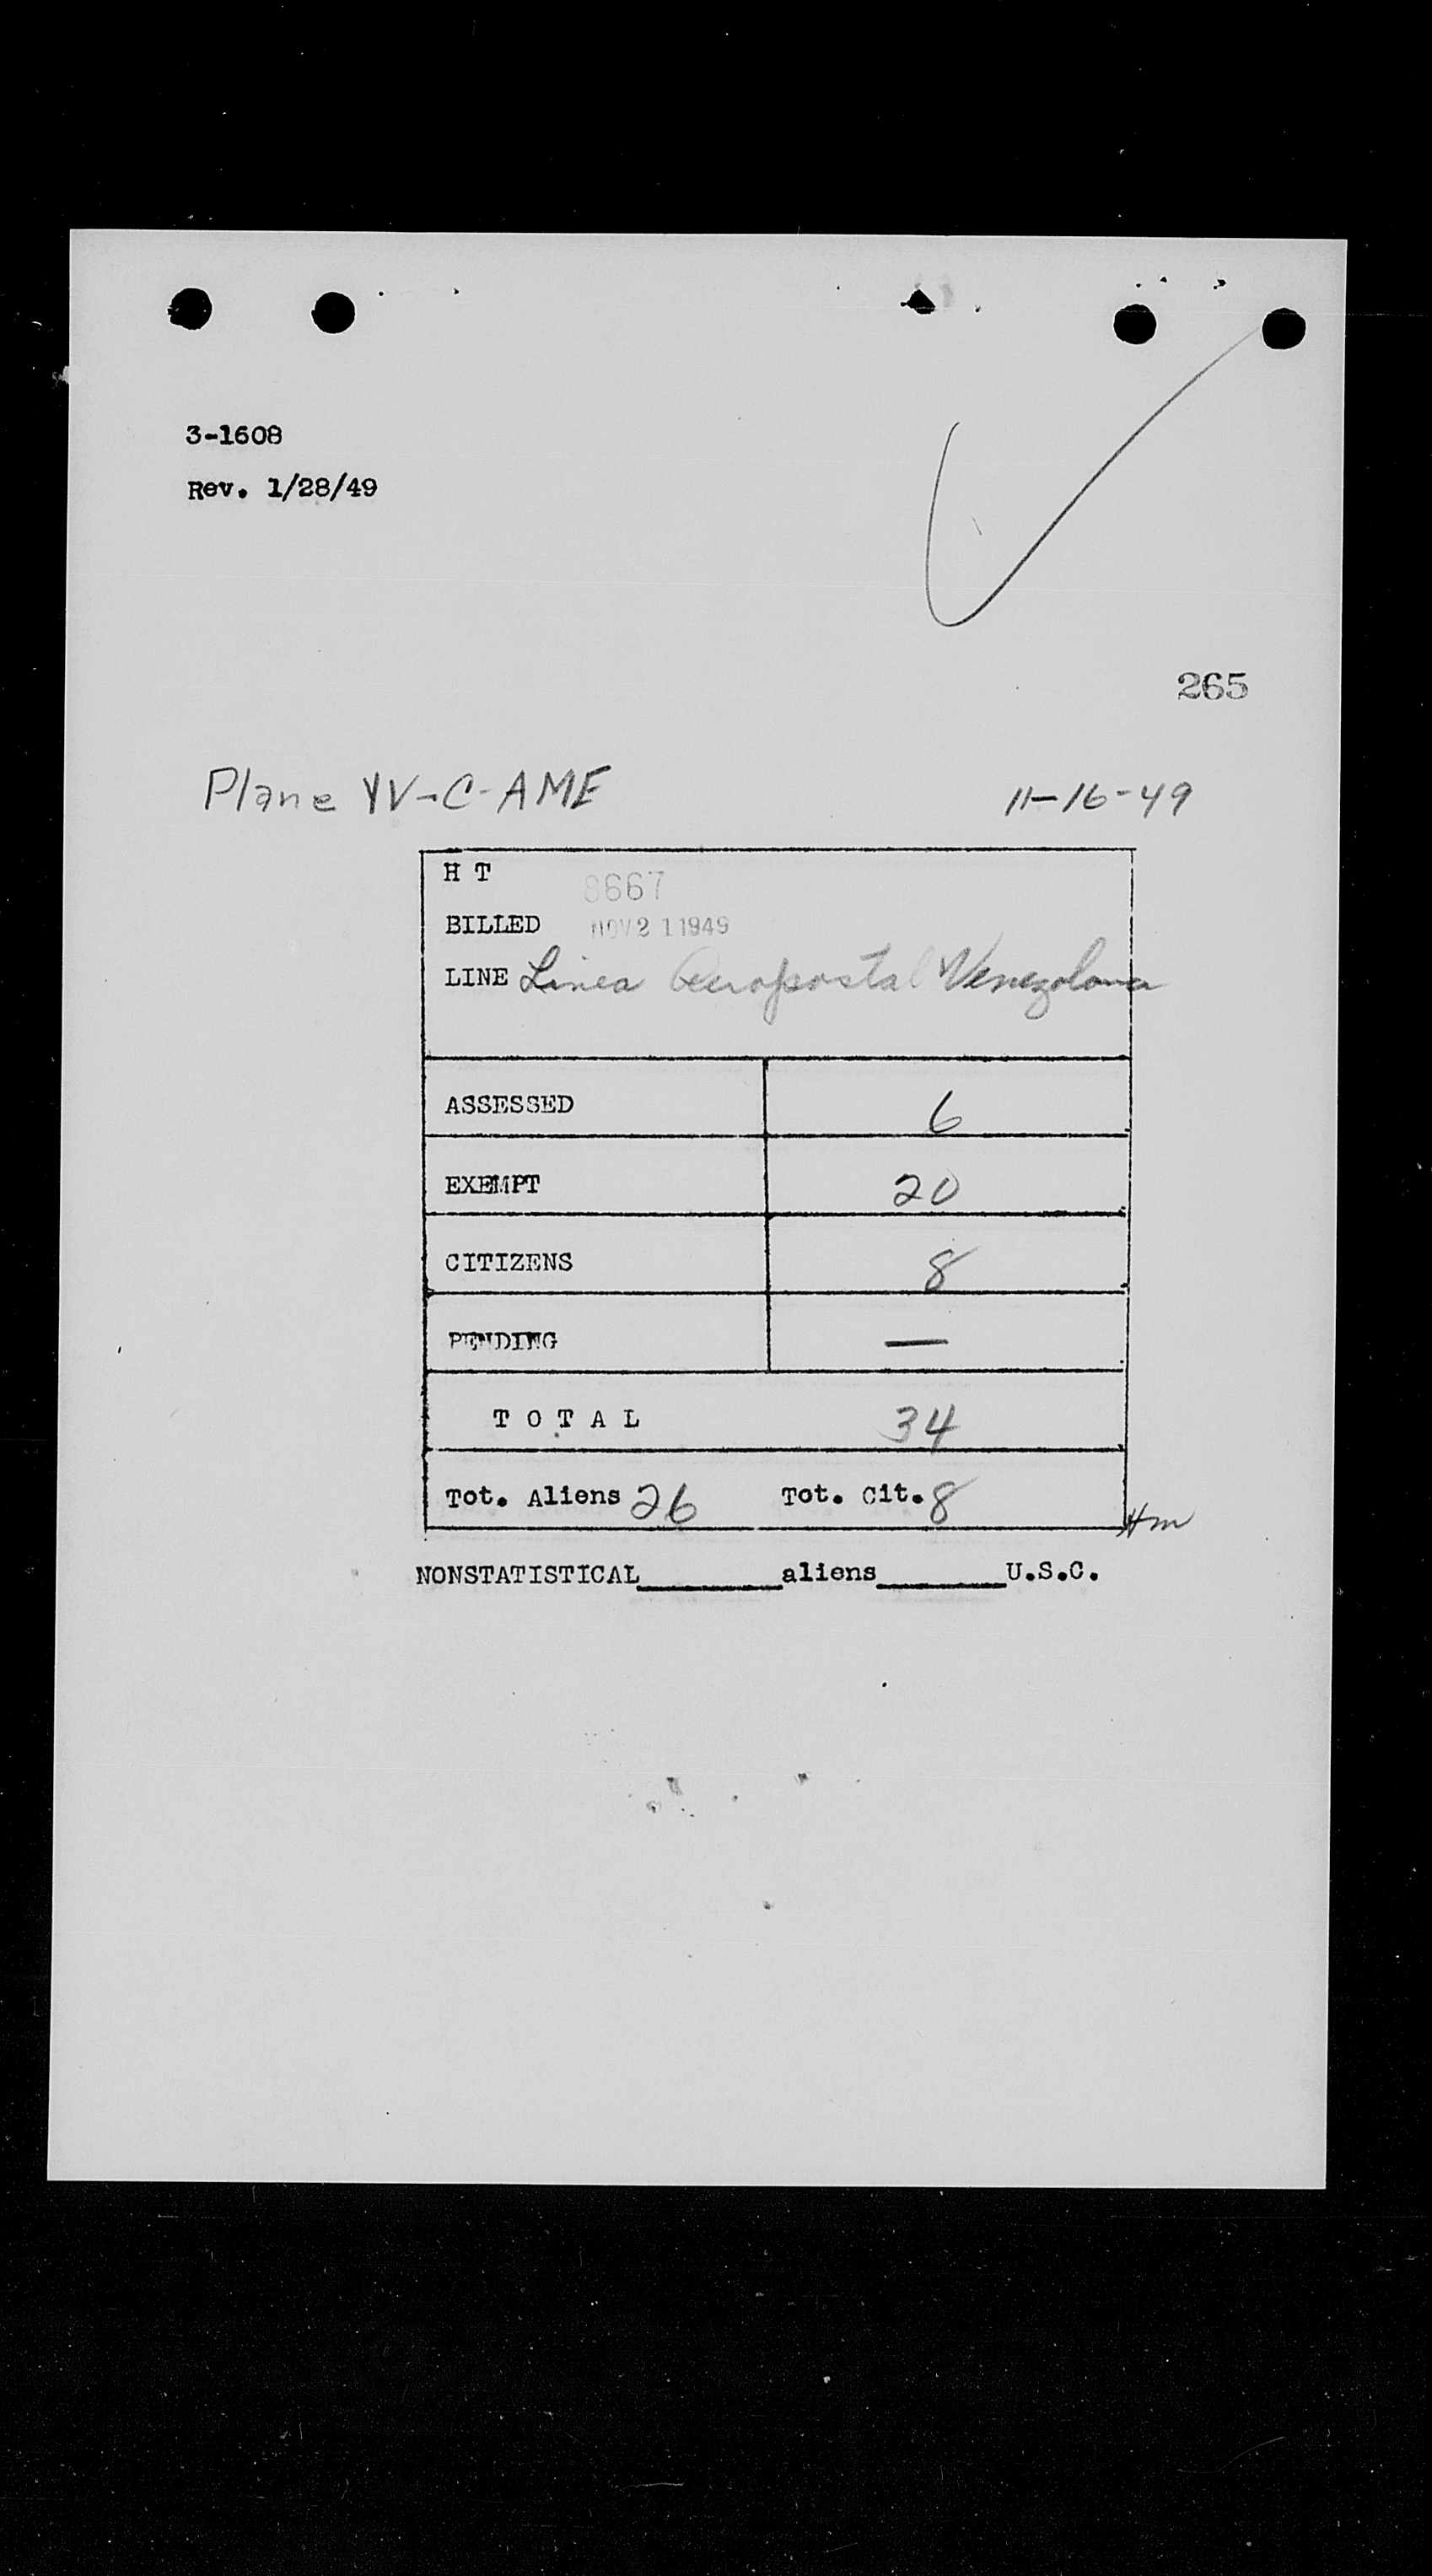 3-1608
Rev. 1/28/49
265
Plane YV-C-AME 11-16-49
H T 8667
BILLED NOV 21 1949
LINE Linea Aeropostal Venezolana
ASSESSED 6
EXEMPT 20
CITIZENS 8
PENDING —
T O T A L 34
Tot. Aliens 26 Tot. Cit. 8
Hm
NONSTATISTICAL________aliens_______U.S.C.